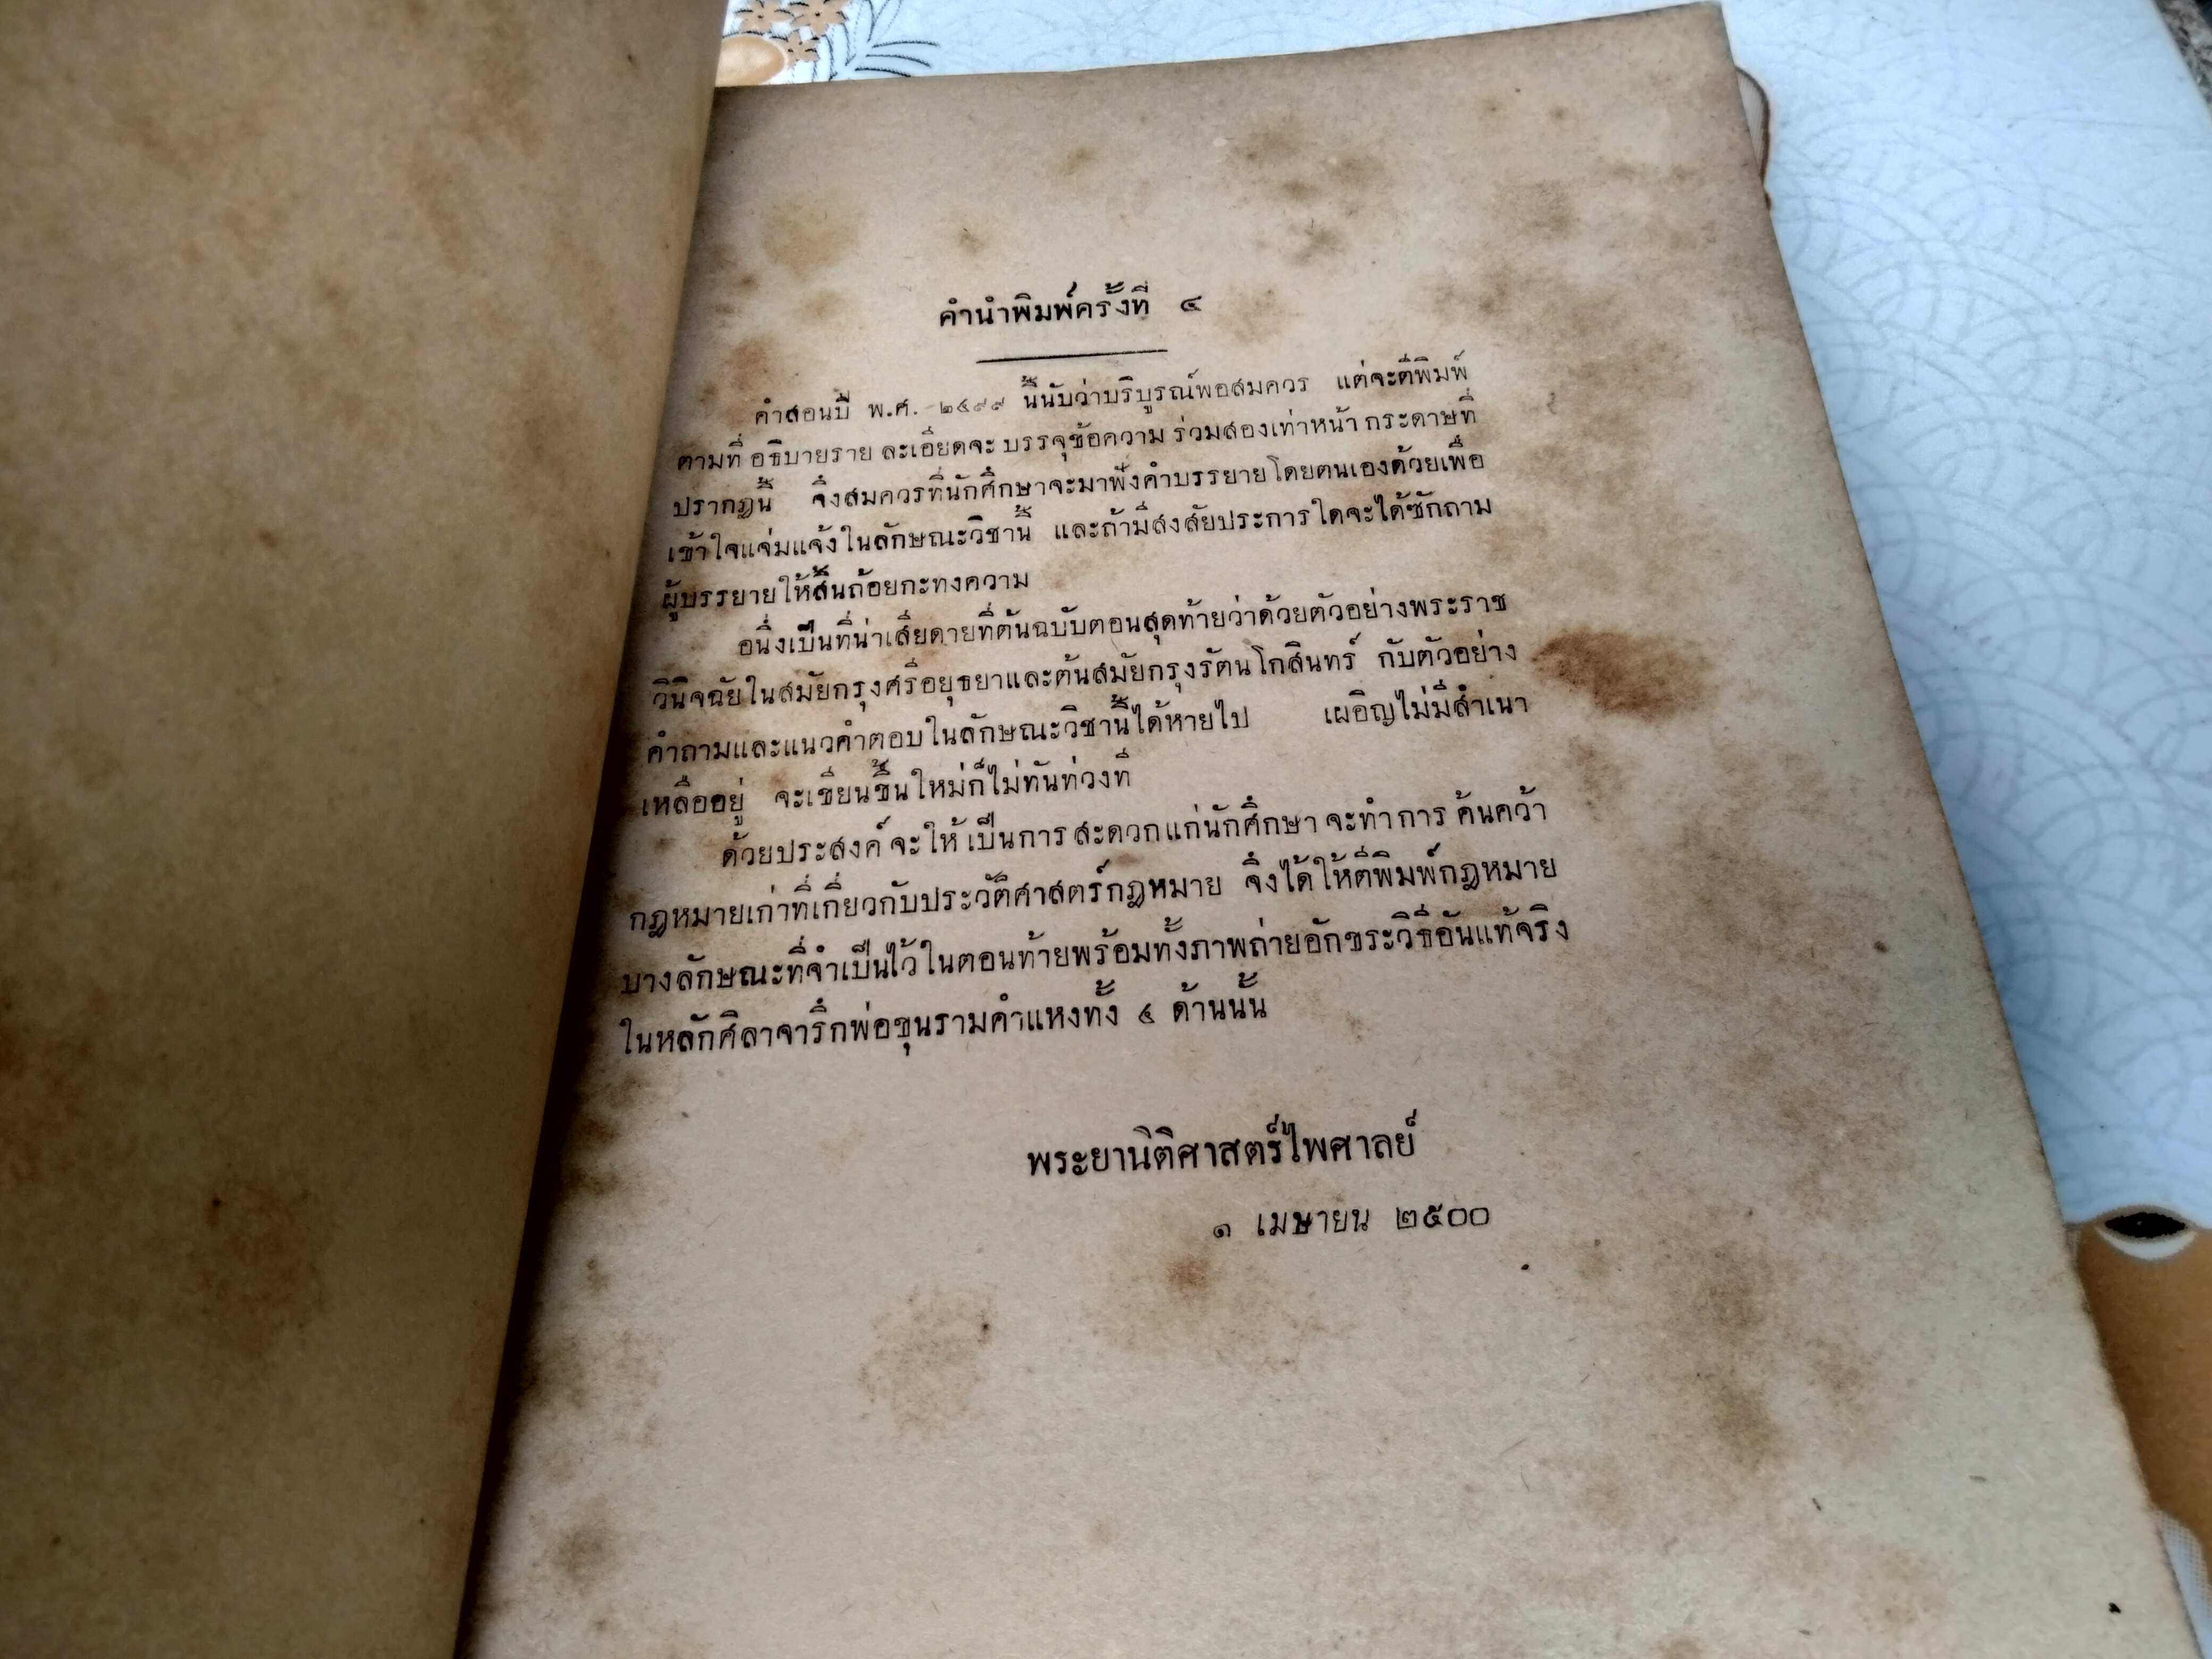 คำนำพิมพ์ครั้งที่ ๔
คำสอนปี พ.ศ. ๒๔๙๙ นี้นับว่าบริบูรณ์พอสมควร แต่จะตีพิมพ์
ตามที่ อธิบายราย ละเอียดจะ บรรจุข้อความ ร่วมสองเท่าหน้า กระดาษที่
ปรากฏนี้ จึงสมควรที่นักศึกษาจะมาฟังคำบรรยายโดยตนเองด้วยเพื่อ
เข้าใจแจ่มแจ้งในลักษณะวิชานี้ และถ้ามีสงสัยประการใดจะได้ซักถาม
ผู้บรรยายให้สิ้นถ้อยกะทงความ
อนึ่งเป็นที่น่าเสียดายที่ต้นฉบับตอนสุดท้ายว่าด้วยตัวอย่างพระราช
วินิจฉัยในสมัยกรุงศรีอยุธยาและต้นสมัยกรุงรัตนโกสินทร์ กับตัวอย่าง
คำถามและแนวคำตอบในลักษณะวิชานี้ได้หายไป เผอิญไม่มีสำเนา
เหลืออยู่ จะเขียนขึ้นใหม่ก็ไม่ทันท่วงที
ด้วยประสงค์ จะให้ เป็นการ สะดวก แก่นักศึกษา จะทำ การ ค้นคว้า
กฎหมายเก่าที่เกี่ยวกับประวัติศาสตร์กฎหมาย จึงได้ให้ตีพิมพ์กฎหมาย
บางลักษณะที่จำเป็นไว้ในตอนท้ายพร้อมทั้งภาพถ่ายอักขระวิธีอันแท้จริง
ในหลักศิลาจารึกพ่อขุนรามคำแหงทั้ง ๔ ด้านนั้น
พระยานิติศาสตร์ไพศาลย์
๑ เมษายน ๒๕๐๐